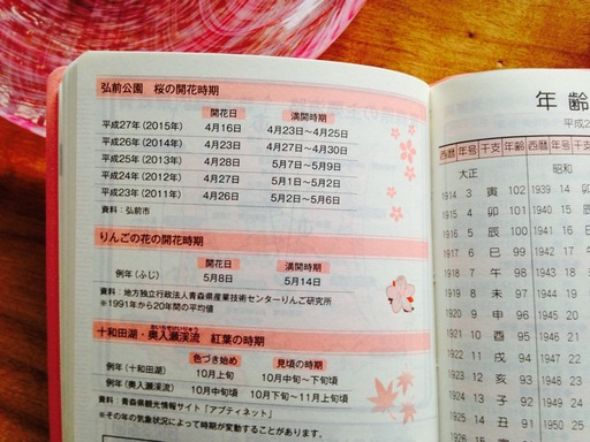 弘前公園　桜の開花時期
開花日　満開時期
平成27年（2015年）　4月16日　4月23日～4月25日
平成26年（2014年）　4月23日　4月27日～4月30日
平成25年（2013年）　4月28日　5月7日～5月9日
平成24年（2012年）　4月27日　5月1日～5月2日
平成23年（2011年）　4月26日　5月2日～5月6日
資料：弘前市
りんごの花の開花時期
開花日　満開時期
例年（ふじ）　5月8日　5月14日
資料：地方独立行政法人青森県産業技術センターりんご研究所
※1991年から20年間の平均値
おいらせけいりゅう
十和田湖・奥入瀬渓流　紅葉の時期
色づき始め　見頃の時期
例年（十和田湖）　10月上旬　10月中旬～下旬頃
例年（奥入瀬渓流）　10月中旬頃　10月下旬～11月上旬頃
資料：青森県観光情報サイト「アプティネット」
※その年の気象状況によって時期が変動することがあります。
年齢
平成2
西暦 年号 干支 年齢 西暦 年号 干
大正　昭和
1914 3 寅 102 1939 14
1915 4 卯 101 1940 15
1916 5 辰 100 1941 16
1917 6 巳 99 1942 17
1918 7 午 98 1943 18
1919 8 未 97 1944 19
1920 9 申 96 1945 20
1921 10 酉 95 1946
1922 11 戌 94 1947
1923 12 亥 93 1948
1924 13 子 92 1949
1925 14 丑 91 1950
1926